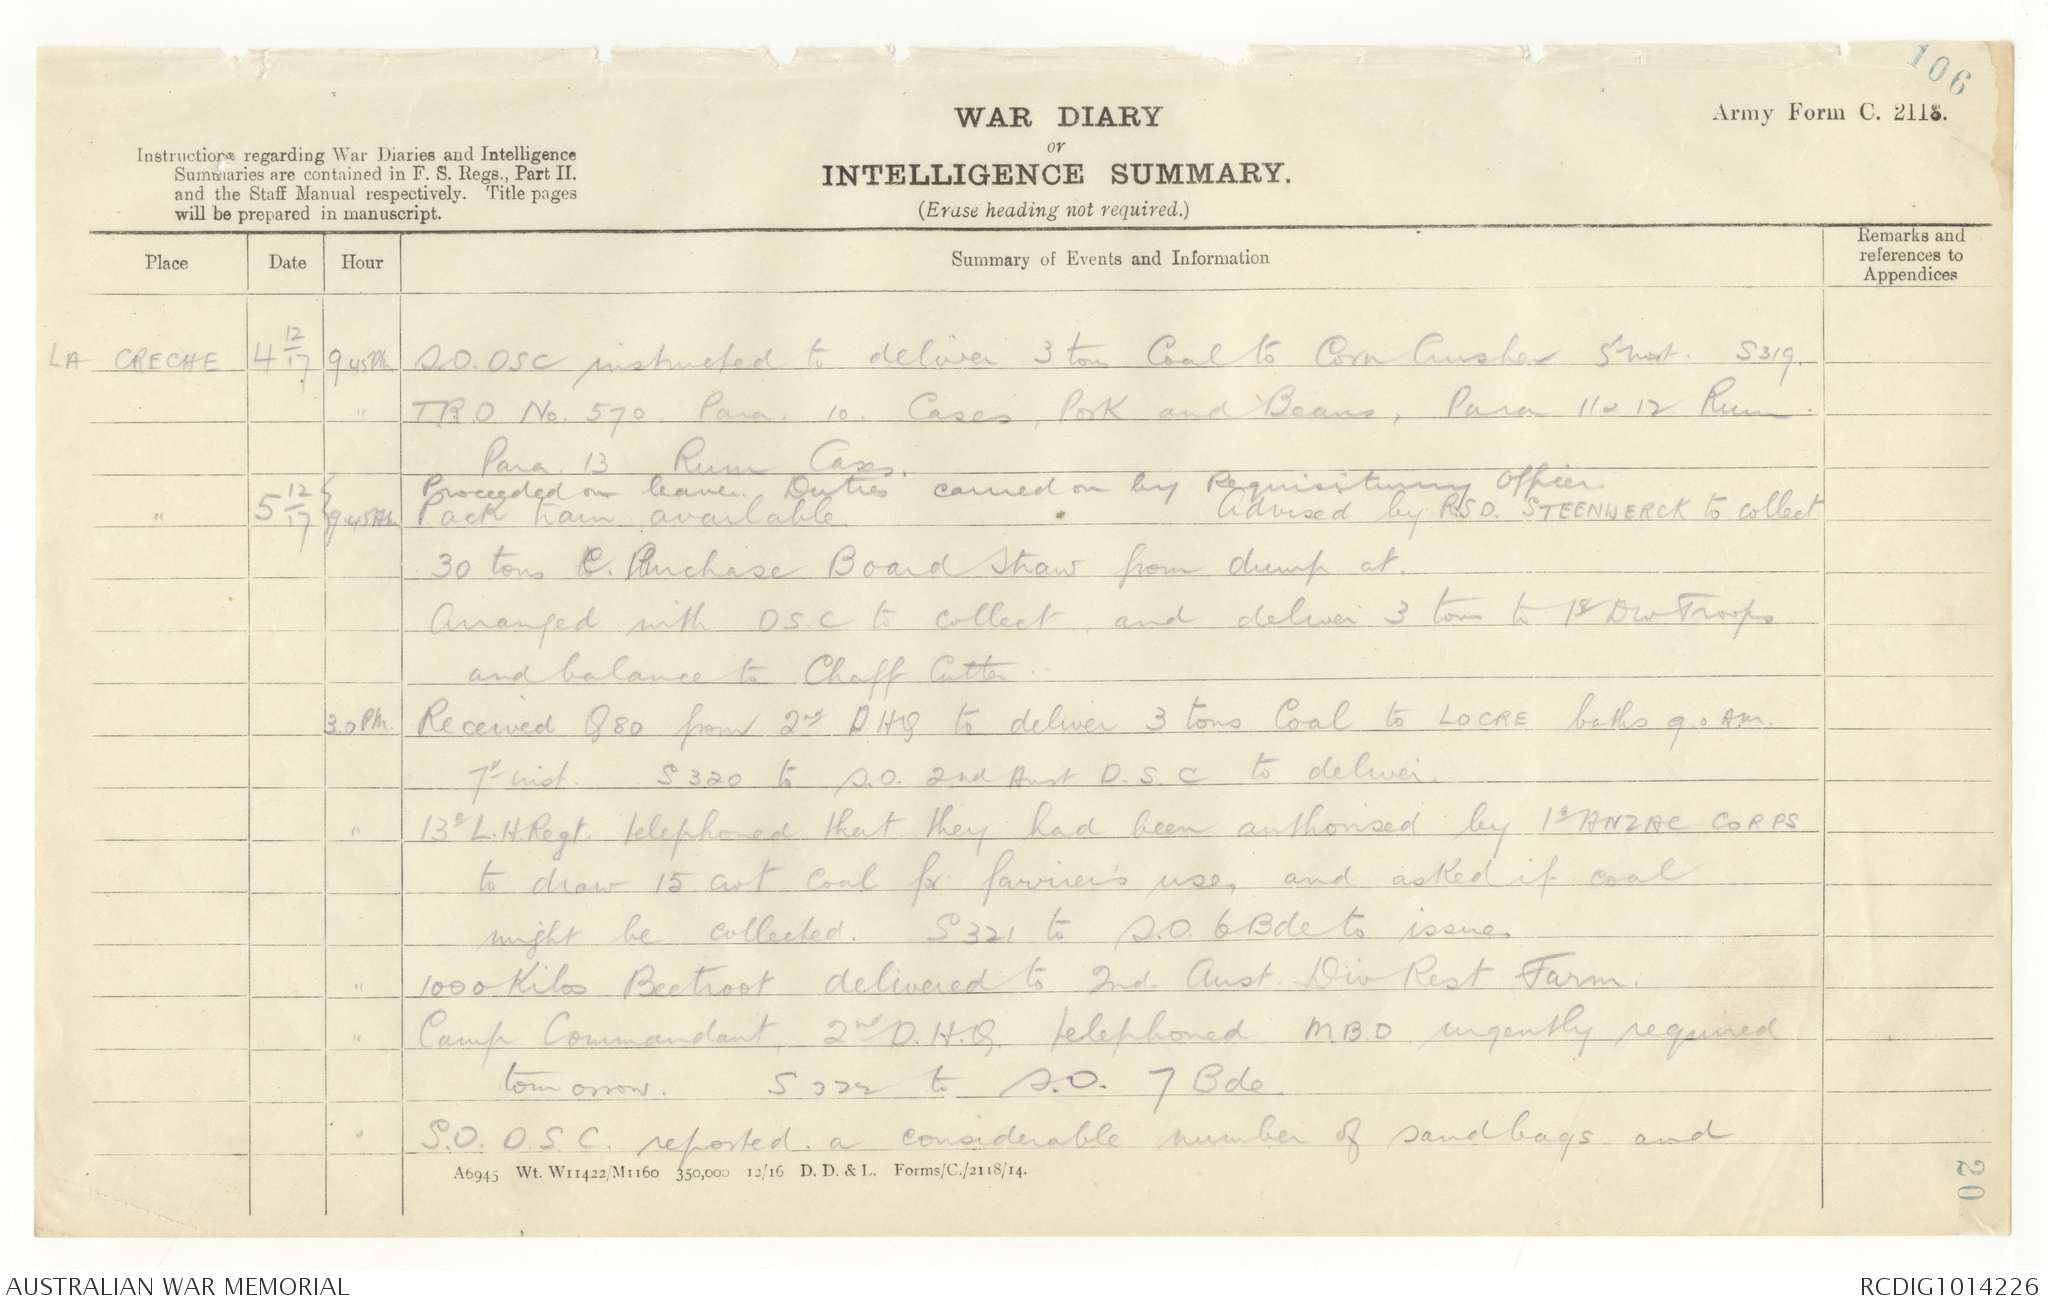 106
Army Form C. 2118.
WAR DIARY
or
INTELLIGENCE SUMMARY.
(Erase heading not required.)
Instructions regarding War Diaries and Intelligence
Summaries are contained in F. S. Regs., Part II.
and the Staff Manual respectively. Title pages
will be prepared in manuscript.
Place Date Hour Summary of Events and Information Remarks and references to Appendices
LA CRECHE 4 12/17 9 45 PM. S.O. OSC instructed to deliver 3 tons Coal to Corn Crusher 5th inst. S319.
" T.R.O No. 570 Para. 10. Cases, Pork and Beans, Para 11 & 12 Rum.
Para. 13 Rum Cases.
Proceeded on leave. Duties carried on by Requisitioning Officer.
" 5 12/17 9 45 AM Pack train available Advised by R.S.O. STEENWERCK to collect
30 tons C. Purchase Board Straw from dump at.
Arranged with OSC to collect and deliver 3 tons to 1st Div Troops
and balance to Chaff Cutter.
3.0 PM. Received Q80 from 2nd D HQ to deliver 3 tons Coal to LOCRE baths 9.0 AM.
7th inst. S320 to S.O. 2nd Aust D.S.C to deliver.
" 13th L.H.Regt. telephoned that they had been authorised by 1st ANZAC CORPS
to draw 15 cwt coal for farrier's use, and asked if coal
might be collected. S321 to S.O. 6 Bde to issue.
" 1000 Kilos Beetroot delivered to 2nd. Aust. Div Rest Farm.
" Camp Commandant, 2nd D.H.Q. telephoned M.B.O urgently required
tomorrow. S322 to S.O. 7 Bde.
" S.O. D.S.C. reported a considerable number of sandbags and
A6945 Wt. W11422/M1160 350,000 12/16 D. D. & L. Forms/C./2118/14.
20
AUSTRALIAN WAR MEMORIAL
RCDIG1014226